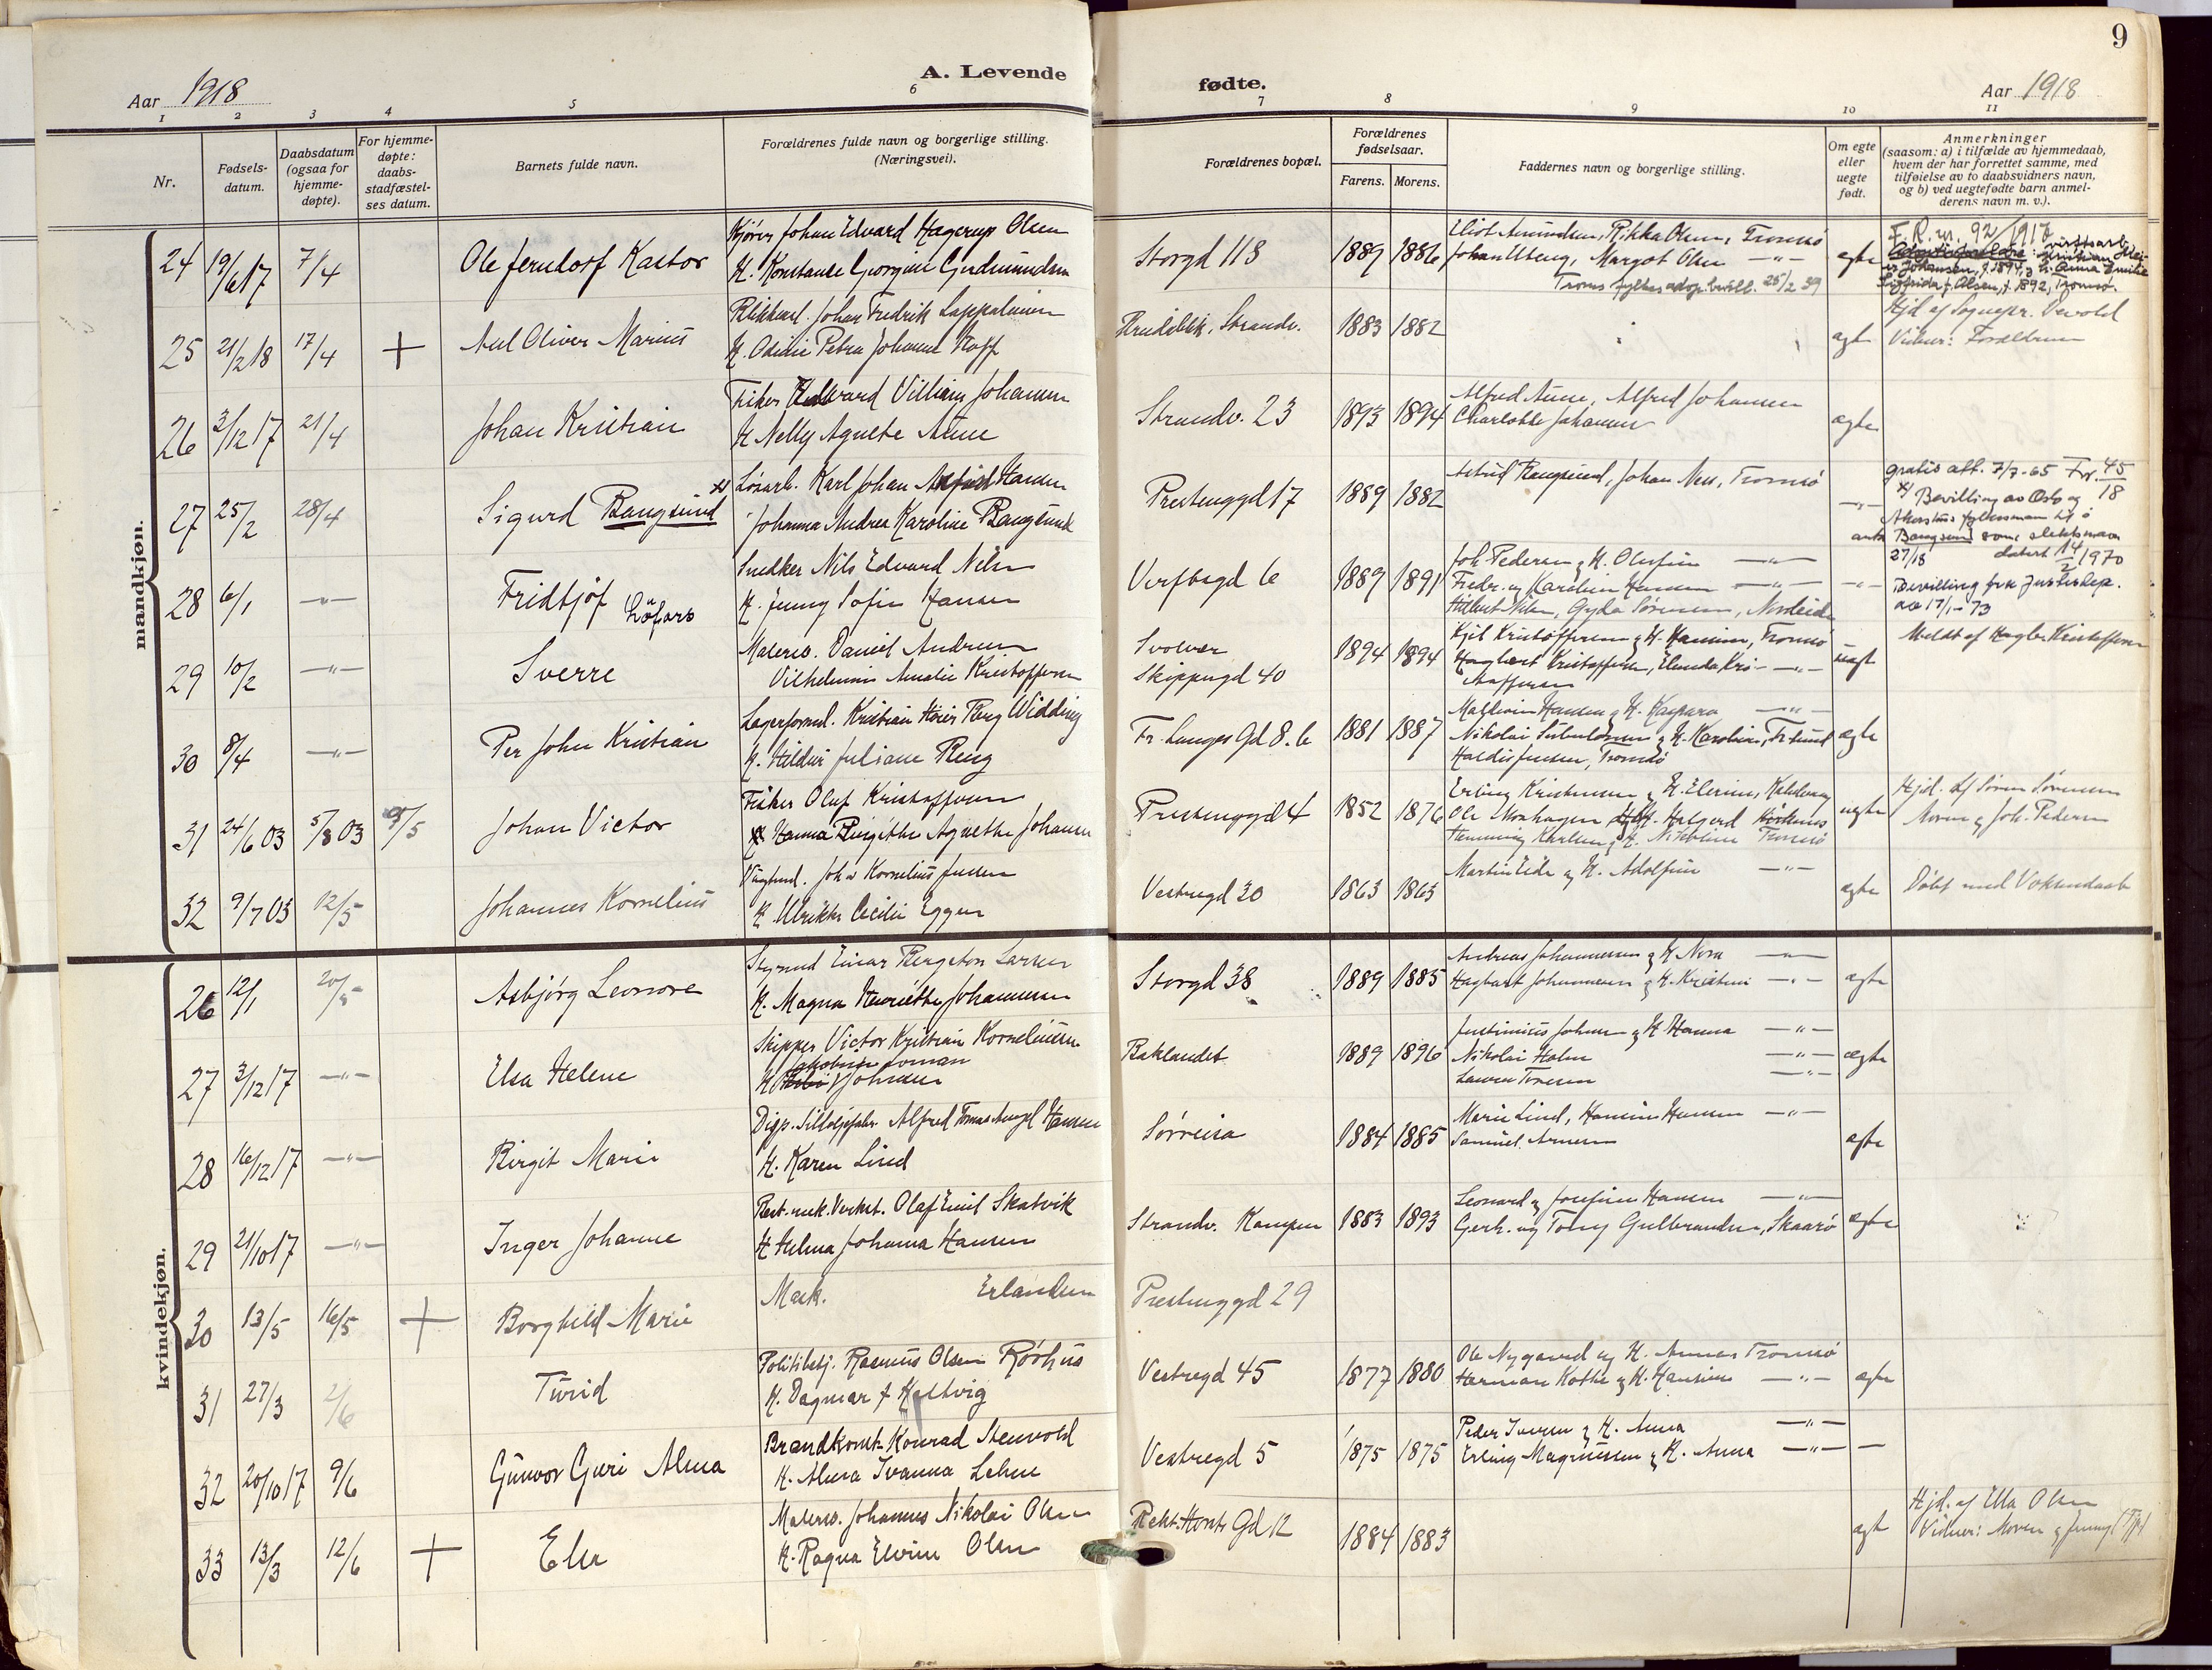 9
A. Levende
fødte.
Aar 1918
Aar 1918
1 2 3 4 5 6 7 8 9 10 11
Nr.
Fødsels-
datum.
Daabsdatum
(ogsaa for
hjemme-
døpte).
For hjemme-
døpte:
daabs-
stadfæstel-
ses datum.
Barnets fulde navn.
Forældrenes fulde navn og borgerlige stilling.
(Næringsvei).
Forældrenes bopæl.
Forældrenes
fødselsaar.
Farens. Morens.
Faddernes navn og borgerlige stilling.
Om egte
eller
uegte
født.
Anmerkninger
(saasom: a) i tilfælde av hjemmedaab,
hvem der har forrettet samme, med
tilføielse av to daabsvidners navn,
og b) ved uegtefødte barn anmel-
derens navn m. v.).
mandkjøn.
24 19/6 17 7/4 Ole Jerndorf Kastor
Kjører Johan Edvard Hagerup Olsen
H. Konstanse Georgine Gudmundsen
Storgd 118 1889 1886
Amundsen, Rikka Olsen, Tromsø
Johan Uteng, Margot Olsen —"—
Troms fylkes adop. bevill. 25/2 39
egte
F. R. nr. 92/1917
Johansen, f. 1894, Anna Emilie
f. Olsen, f. 1892, Tromsø.
25 21/2 18 17/4 + Aul Oliver Marius
Johan Fredrik Lappalainen
H. Odine Petra Johanne Hoff
Strandv. 1883 1882
egte
Hjd af Sognepr. Vevold
Vidner: Forældrene
26 3/12 17 21/4 Johan Kristian
Fisker Halvard Villiam Johansen
H Nelly Agnete Aune
Strandv. 23 1893 1894
Alfred Aune, Alfred Johansen
Charlotte Johansen
egte
27 25/2 28/4 Sigurd Bangsund x)
Løsarb. Karl Johan Hansen
Johanna Andrea Karoline Bangsund
Prestenggd 17 1889 1882
Astrid Bangsund, Johan Ness, Tromsø
—"—
gratis att. 7/7-65 Fr. 45/18
x) Bevilling av Oslo og
Akershus fylkesmann til å
anta Bangsund som slektsnavn
27/18 datert 14/2 1970
28 6/1 —"— Fridtjof Löfars
Snedker Nils Edvard Nilsen
H. Jenny Sofie Hansen
Verftsgd 6 1889 1891
Joh Pedersen & H. Olufine —"—
Fredr. og Karoline Hansen —"—
Nilsen, Gyda Sørensen,
—"—
Bevilling fra Justisdep.
av 17/1-73
29 10/2 —"— Sverre
Malersv. Daniel Andersen
Vilhelmine Amalie Kristoffersen
Svolvær
Skippergd 40
1894 1894
Kjil Kristoffersen & H. Hansine, Tromsø
Hagbart Kristoffersen, Elenda Kri- —"—
stoffersen
uegt
Meldt af Hagb. Kristoffersen
30 8/4 —"— Per John Kristian
Lagerformd. Kristian Høier Berg Widding
H. Hildur Juliane Berg
Fr. Langes Gd 8. b 1881 1887
Maldvin Hansen & H. Kaspara —"—
Nikolai & H. Karoline,
Haldis Jensen, Tromsø
egte
31 24/6 03 5/8 03 9/5 Johan Victor
Fisker Oluf Kristoffersen
Hanna Birgithe Agnethe Johansen
Prestenggd 4 1852 1876
Erling Kristensen & H. Elerine,
Ole H. Halgerd Kirkenes
Henning Karlsen & H. Nikoline Tromsø
uegte
Hjd. af Søren Sørensen
Moren & Joh. Pedersen
32 9/7 03 12/5 Johannes Kornelius
Joh. Kornelius Jensen
H Ulrikke Cecilie Eggen
Vestregd 30 1863 1863
Martin Eide & H. Adolfine —"—
egte
Døbt med Voksendaab
kvindekjøn.
26 12/1 20/5 Asbjørg Leonore
Styrmd Einar Bergeton Larsen
H. Magna Henriette Johannesen
Storgd 38 1889 1885
Andreas Johannessen & H Nora —"—
Hagbart Johannessen & H. Kristine —"—
egte
27 3/12 17 —"— Elsa Helene
Skipper Victor Kristian Kornelius
Jakobine Lornan
H Johnsen
Baklandet 1889 1896
Justinius Johnsen & H Hanna —"—
Nikolai Holm —"—
Laura —"—
egte
28 16/12 17 —"— Birgit Marie
Alfred Tomas Hansen
H. Karen Lind
Sørreisa 1884 1885
Marie Lind, Hansine Hansen —"—
Samuel Arnesen
egte
29 21/10 17 —"— Inger Johanne
Olaf Emil Skatvik
H Helma Johanna Hansen
Strandv. Kampen 1883 1893
Leonard & Josefine Hansen —"—
Gerh. og Tony Gulbrandsen, Skaarø
egte
30 13/5 16/5 + Borghild Marie
Mask. Erlandsen
Prestenggd 29
31 27/3 2/6 Turid
Politibetj. Rasmus Olsen Rørhus
H. Dagmar f Heltvig
Vestregd 45 1877 1880
Ole Nygaard og H. Anna Tromsø
Herman Kothe & H. Hansine —"—
egte
32 20/10 17 9/6 Gunvor Guri Alma
Brandkonst. Konrad Stenvold
H. Alma Ivanna Lehne
Vestregd 5 1875 1875
Peder Iversen & H. Anna —"—
Erling Magnussen & H. Anna —"— —
33 13/3 12/6 + Elsa
Malersv. Johannes Nikolai Olsen
H. Ragna Elvine Olsen
Rekt. Horst Gd 12 1884 1883
egt
Hjd. af Ella Olsen
Vidner: Moren & Jenny